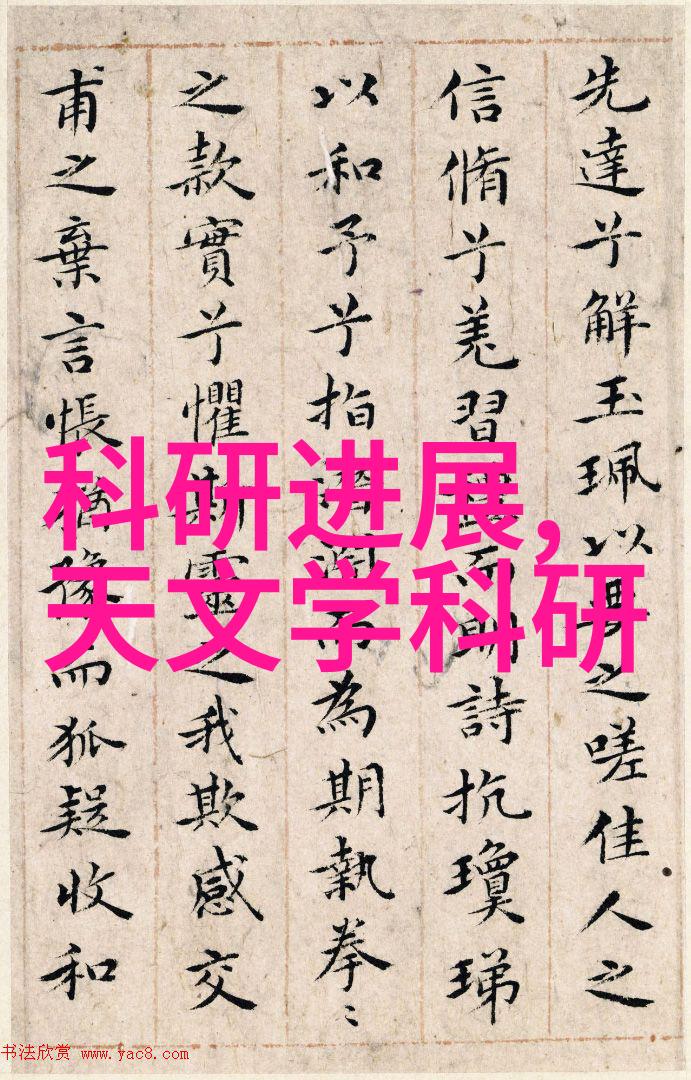 先達兮解玉珮以要之嗟佳人之
信脩兮羌習禮而明詩抗瓊珶
以和予兮指潛淵而為期執拳〻
之款實兮懼斯靈之我欺感交
甫之棄言悵猶豫而狐疑收和
科研进展,
天文学科研
书法欣赏 www.yac8.com